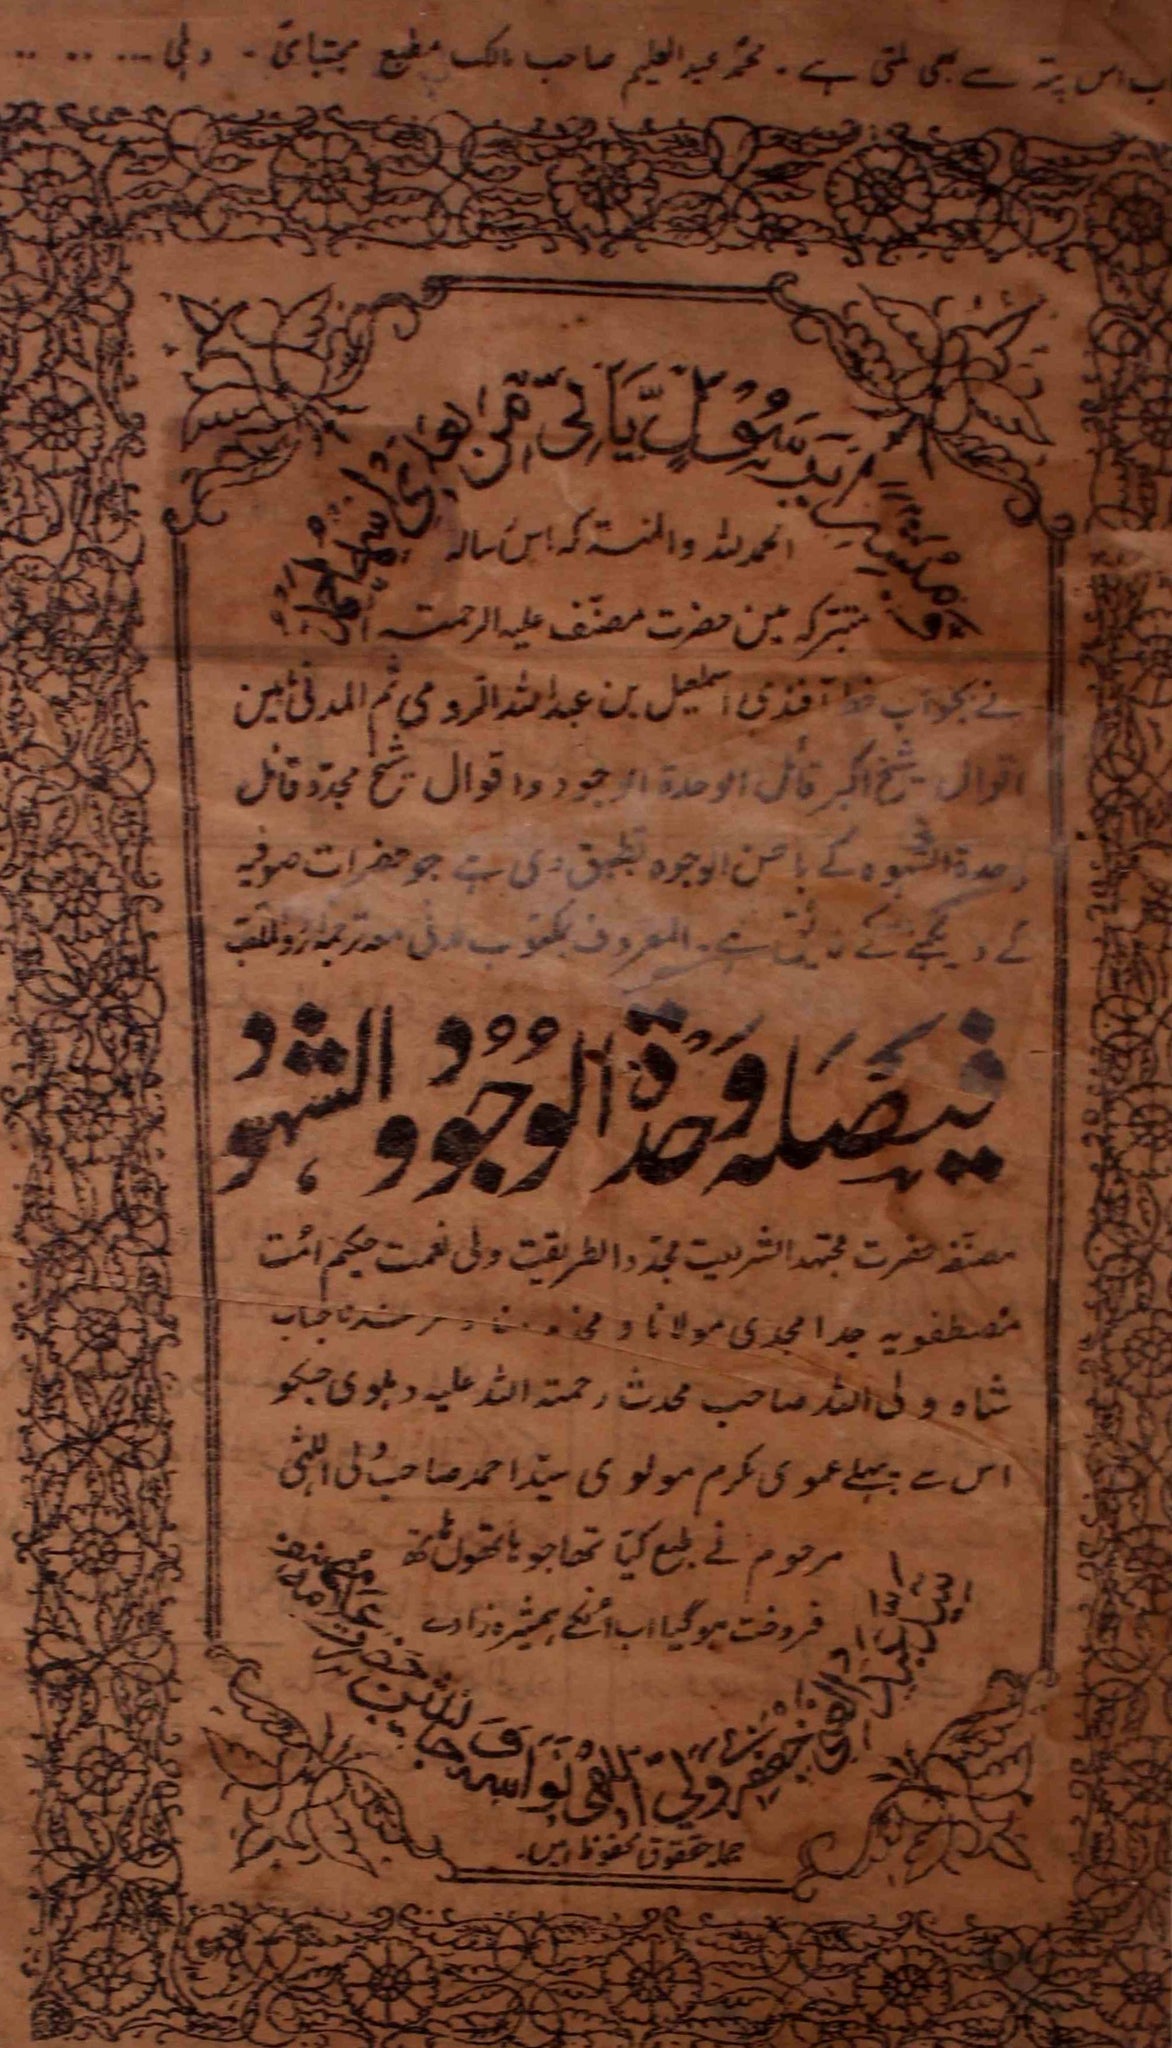 اس پتہ سے بھی ملتی ہے ۔ محمد عبد العلیم صاحب مالک مطبع مجتبائی ۔ دہلی
ومبشرا برسول یاتی من بعدی اسمہ احمد
الحمد للہ والمنتہ کہ اس رسالہ
متبرکہ مین حضرت مصنف علیہ الرحمتہ
نے بجواب خط آفندی اسمٰعیل بن عبداللہ الرومی ثم المدنی مابین
اقوال شیخ اکبر قائل الوحدۃ الوجود و اقوال شیخ مجدد قائل
وحدۃ الشہود کے باحسن الوجوہ تطبیق دی ہے جو حضرات صوفیہ
کے دیکھنے کے لائق ہے ۔ المعروف بمکتوب مدنی معہ ترجمہ اردو الملقب
فیصلہ وحدۃ الوجود والشہود
مصنفہ حضرت مجتہد الشریعت مجدد الطریقیت ولی نعمت حکیم امت
مصطفویہ جد امجدی مولانا و مخدومنا و مرشدنا جناب
شاہ ولی اللہ صاحب محدث رحمتہ اللہ علیہ دہلوی جسکو
اس سے پہلے عموی مکرم مولوی سید احمد صاحب ولی اللہی
مرحوم نے طبع کیا تھا جو ہاتھوں ہاتھ
فروخت ہوگیا اب انکے ہمشیرہ زادے
سید عبد الغنی جعفری ولی اللہی نواسہ و جانشین حضرت علامہ
جملہ حقوق محفوظ ہیں۔